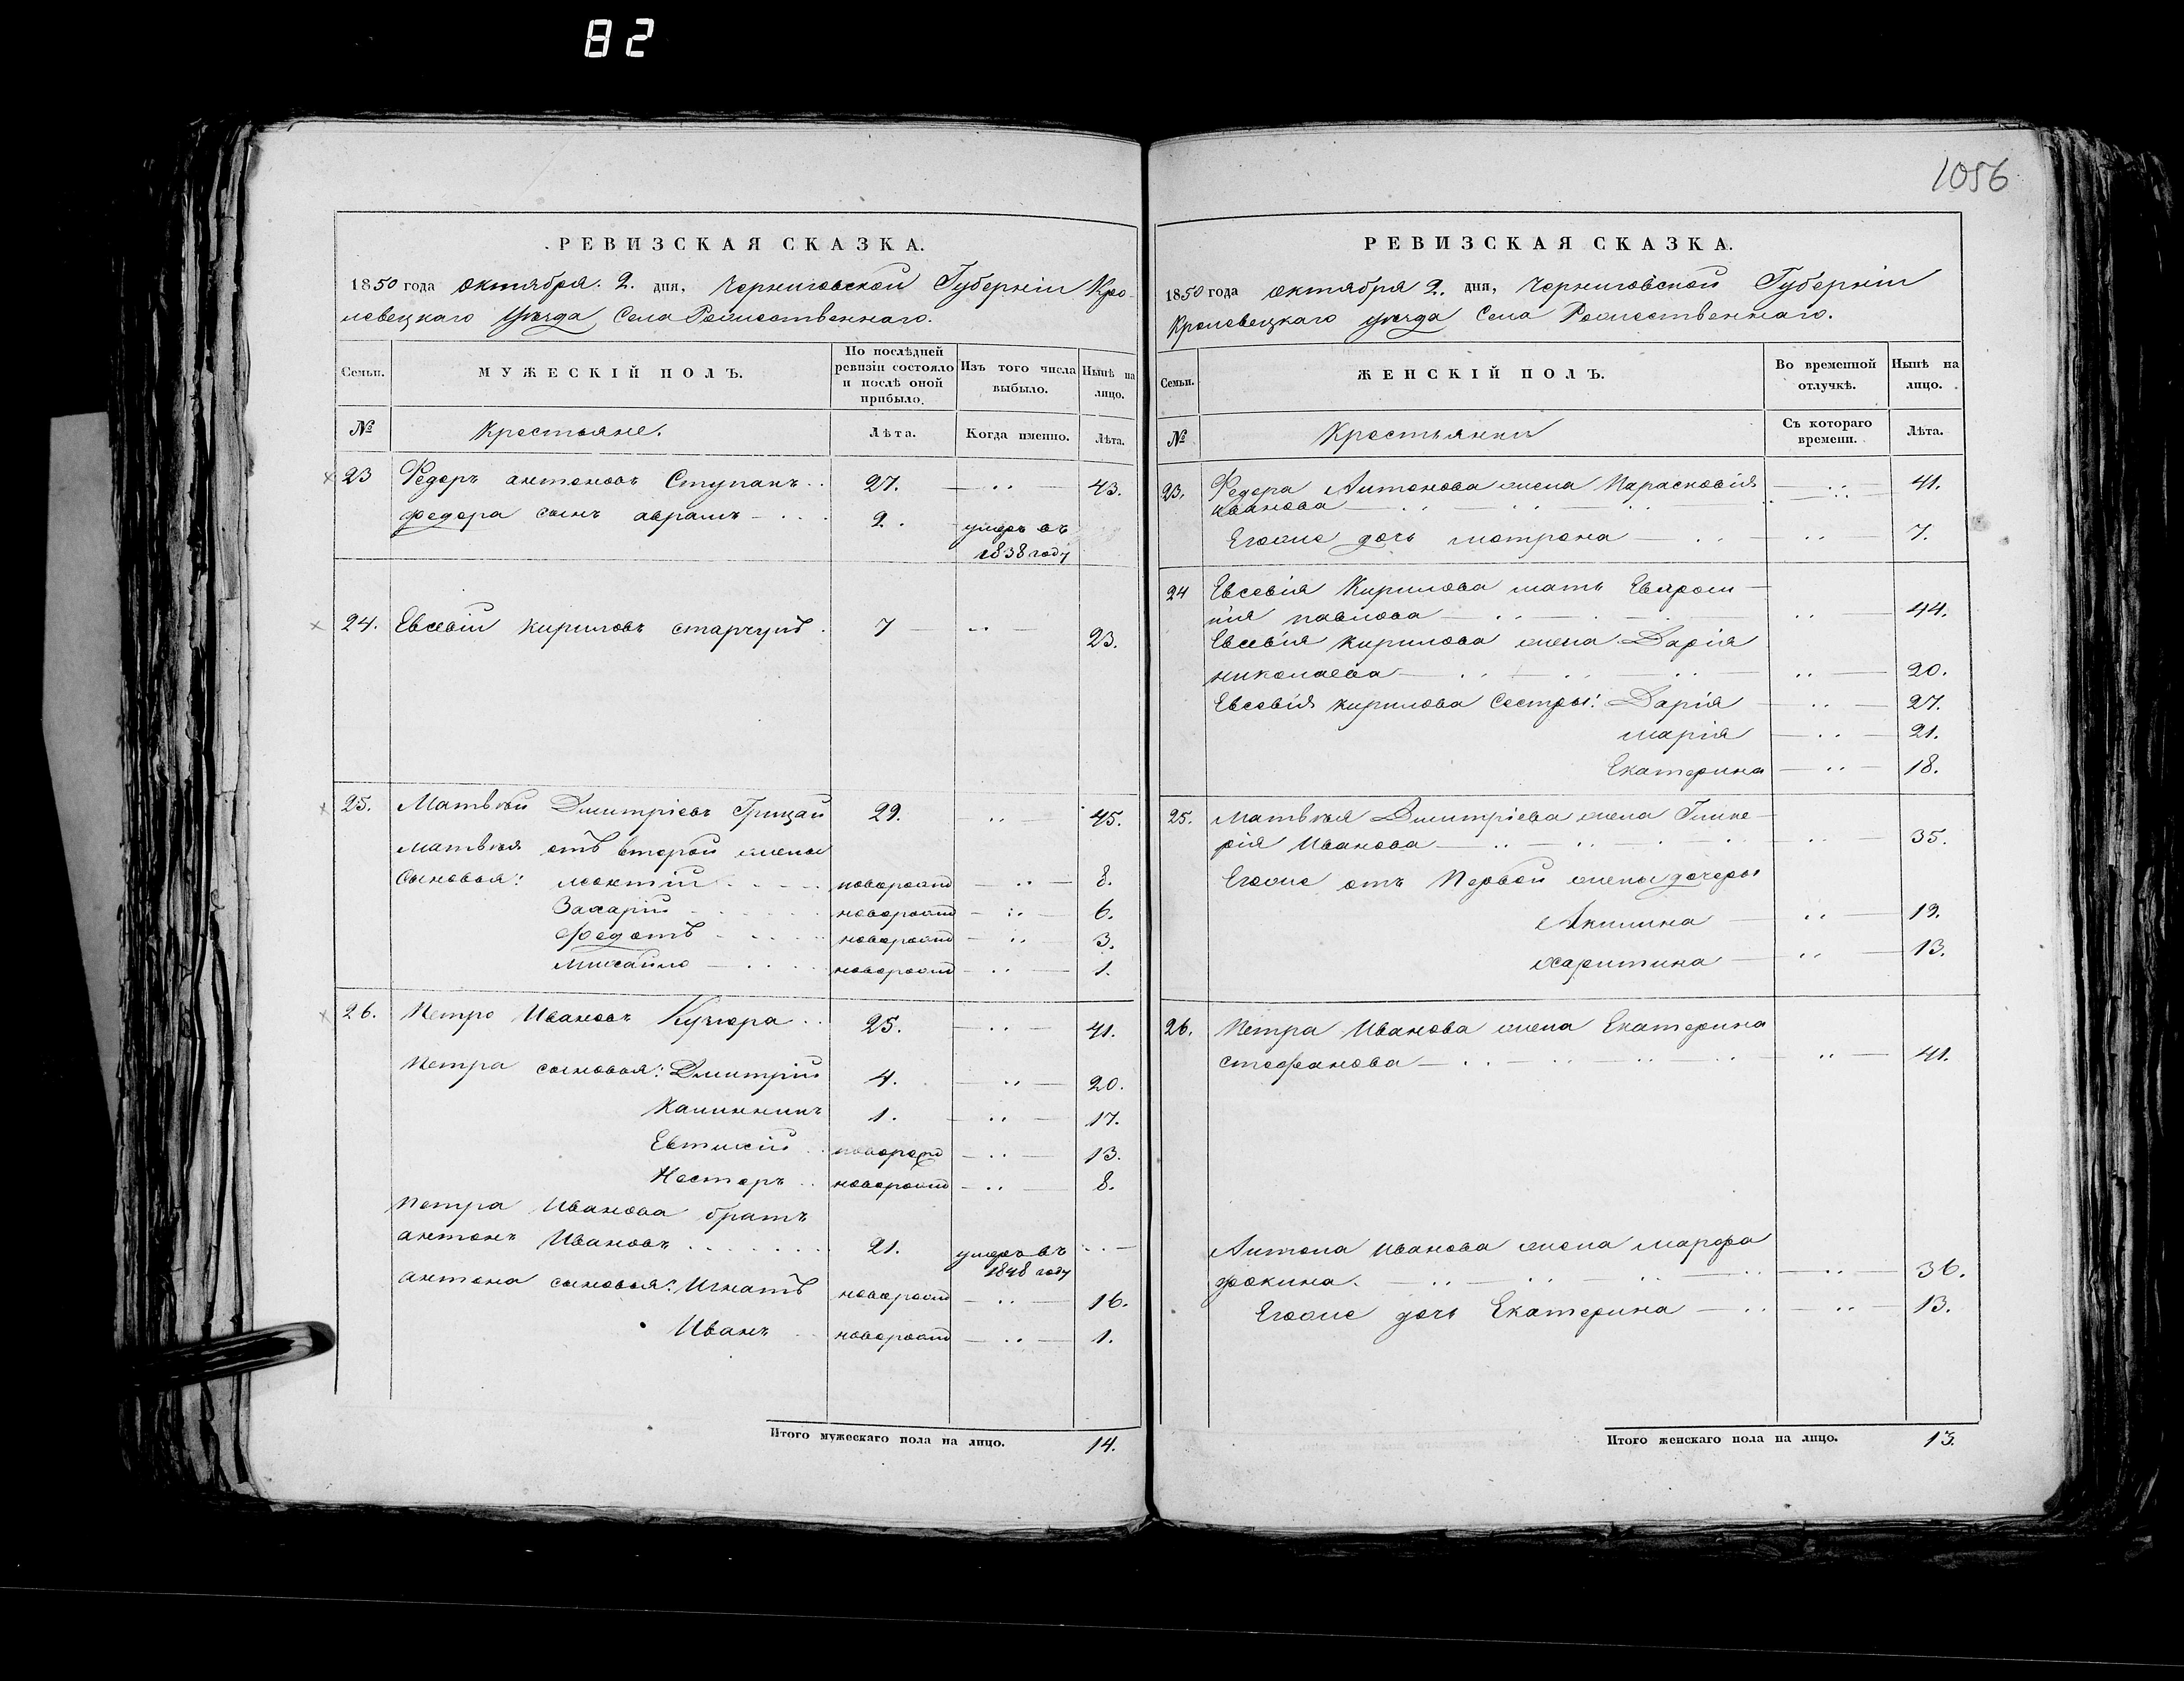 82
1056
РЕВИЗСКАЯ СКАЗКА.
1850 года октября 2. дня, Черниговской Губерніи Кро-
левецкаго Уѣзда Села Рожественнаго.
Семьи. МУЖЕСКІЙ ПОЛЪ. По послѣдней ревизіи состояло и послѣ оной прибыло. Изъ того числа выбыло. Нынѣ на лицо.
№ Крестьяне. Лѣта. Когда именно. Лѣта.
23 Федоръ антоновъ Ступакъ 27. 43.
федора сынъ аврамъ 2. умеръ въ
1838 году
24. Евсевій кириловъ 7 23.
25. Матвѣй Дмитріевъ Грицай 29. 45.
Матвѣя отъ второй жены
сыновья: новорожд 8.
Захарій новорожд 6.
Федотъ новорожд 3.
Михайло новорожд 1.
26. Петро Ивановъ Кучера 25. 41.
Петра сыновья: Дмитрій 4. 20.
Калинникъ 1. 17.
Евтихій новорожд 13.
Нестеръ новорожд 8.
Петра Иванова братъ
антонъ Ивановъ 21. умеръ въ
1848 году
антона сыновья: Игнатъ новорожд 16.
Иванъ новорожд 1.
Итого мужескаго пола на лицо. 14.
РЕВИЗСКАЯ СКАЗКА.
1850 года октября 2. дня, Черниговской Губерніи
Кролевецкаго уѣзда Села Рожественнаго.
Семьи. ЖЕНСКІЙ ПОЛЪ. Во временной отлучкѣ. Нынѣ на лицо.
№ Крестьянки Съ котораго времени. Лѣта.
23. Федора Антонова жена Парасковія 41.
иванова
Егоже дочь мотрона 7.
24 Евсевія Кирилова мать Евфроси-
нія павлова 44.
Евсевія кирилова жена Дарія
николаева 20.
Евсевія кирилова сестры: Дарія 27.
марія 21.
Екатерина 18.
25. Матвѣя Дмитріева жена Глике-
рія Иванова 35.
Егоже отъ первой жены дочеры
Акилина 19.
харитина 13.
26. Петра Иванова жена Екатерина
стефанова 41.
Антона иванова жена марфа
фокина. 36.
Егоже дочь Екатерина 13.
Итого женскаго пола на лицо. 13.